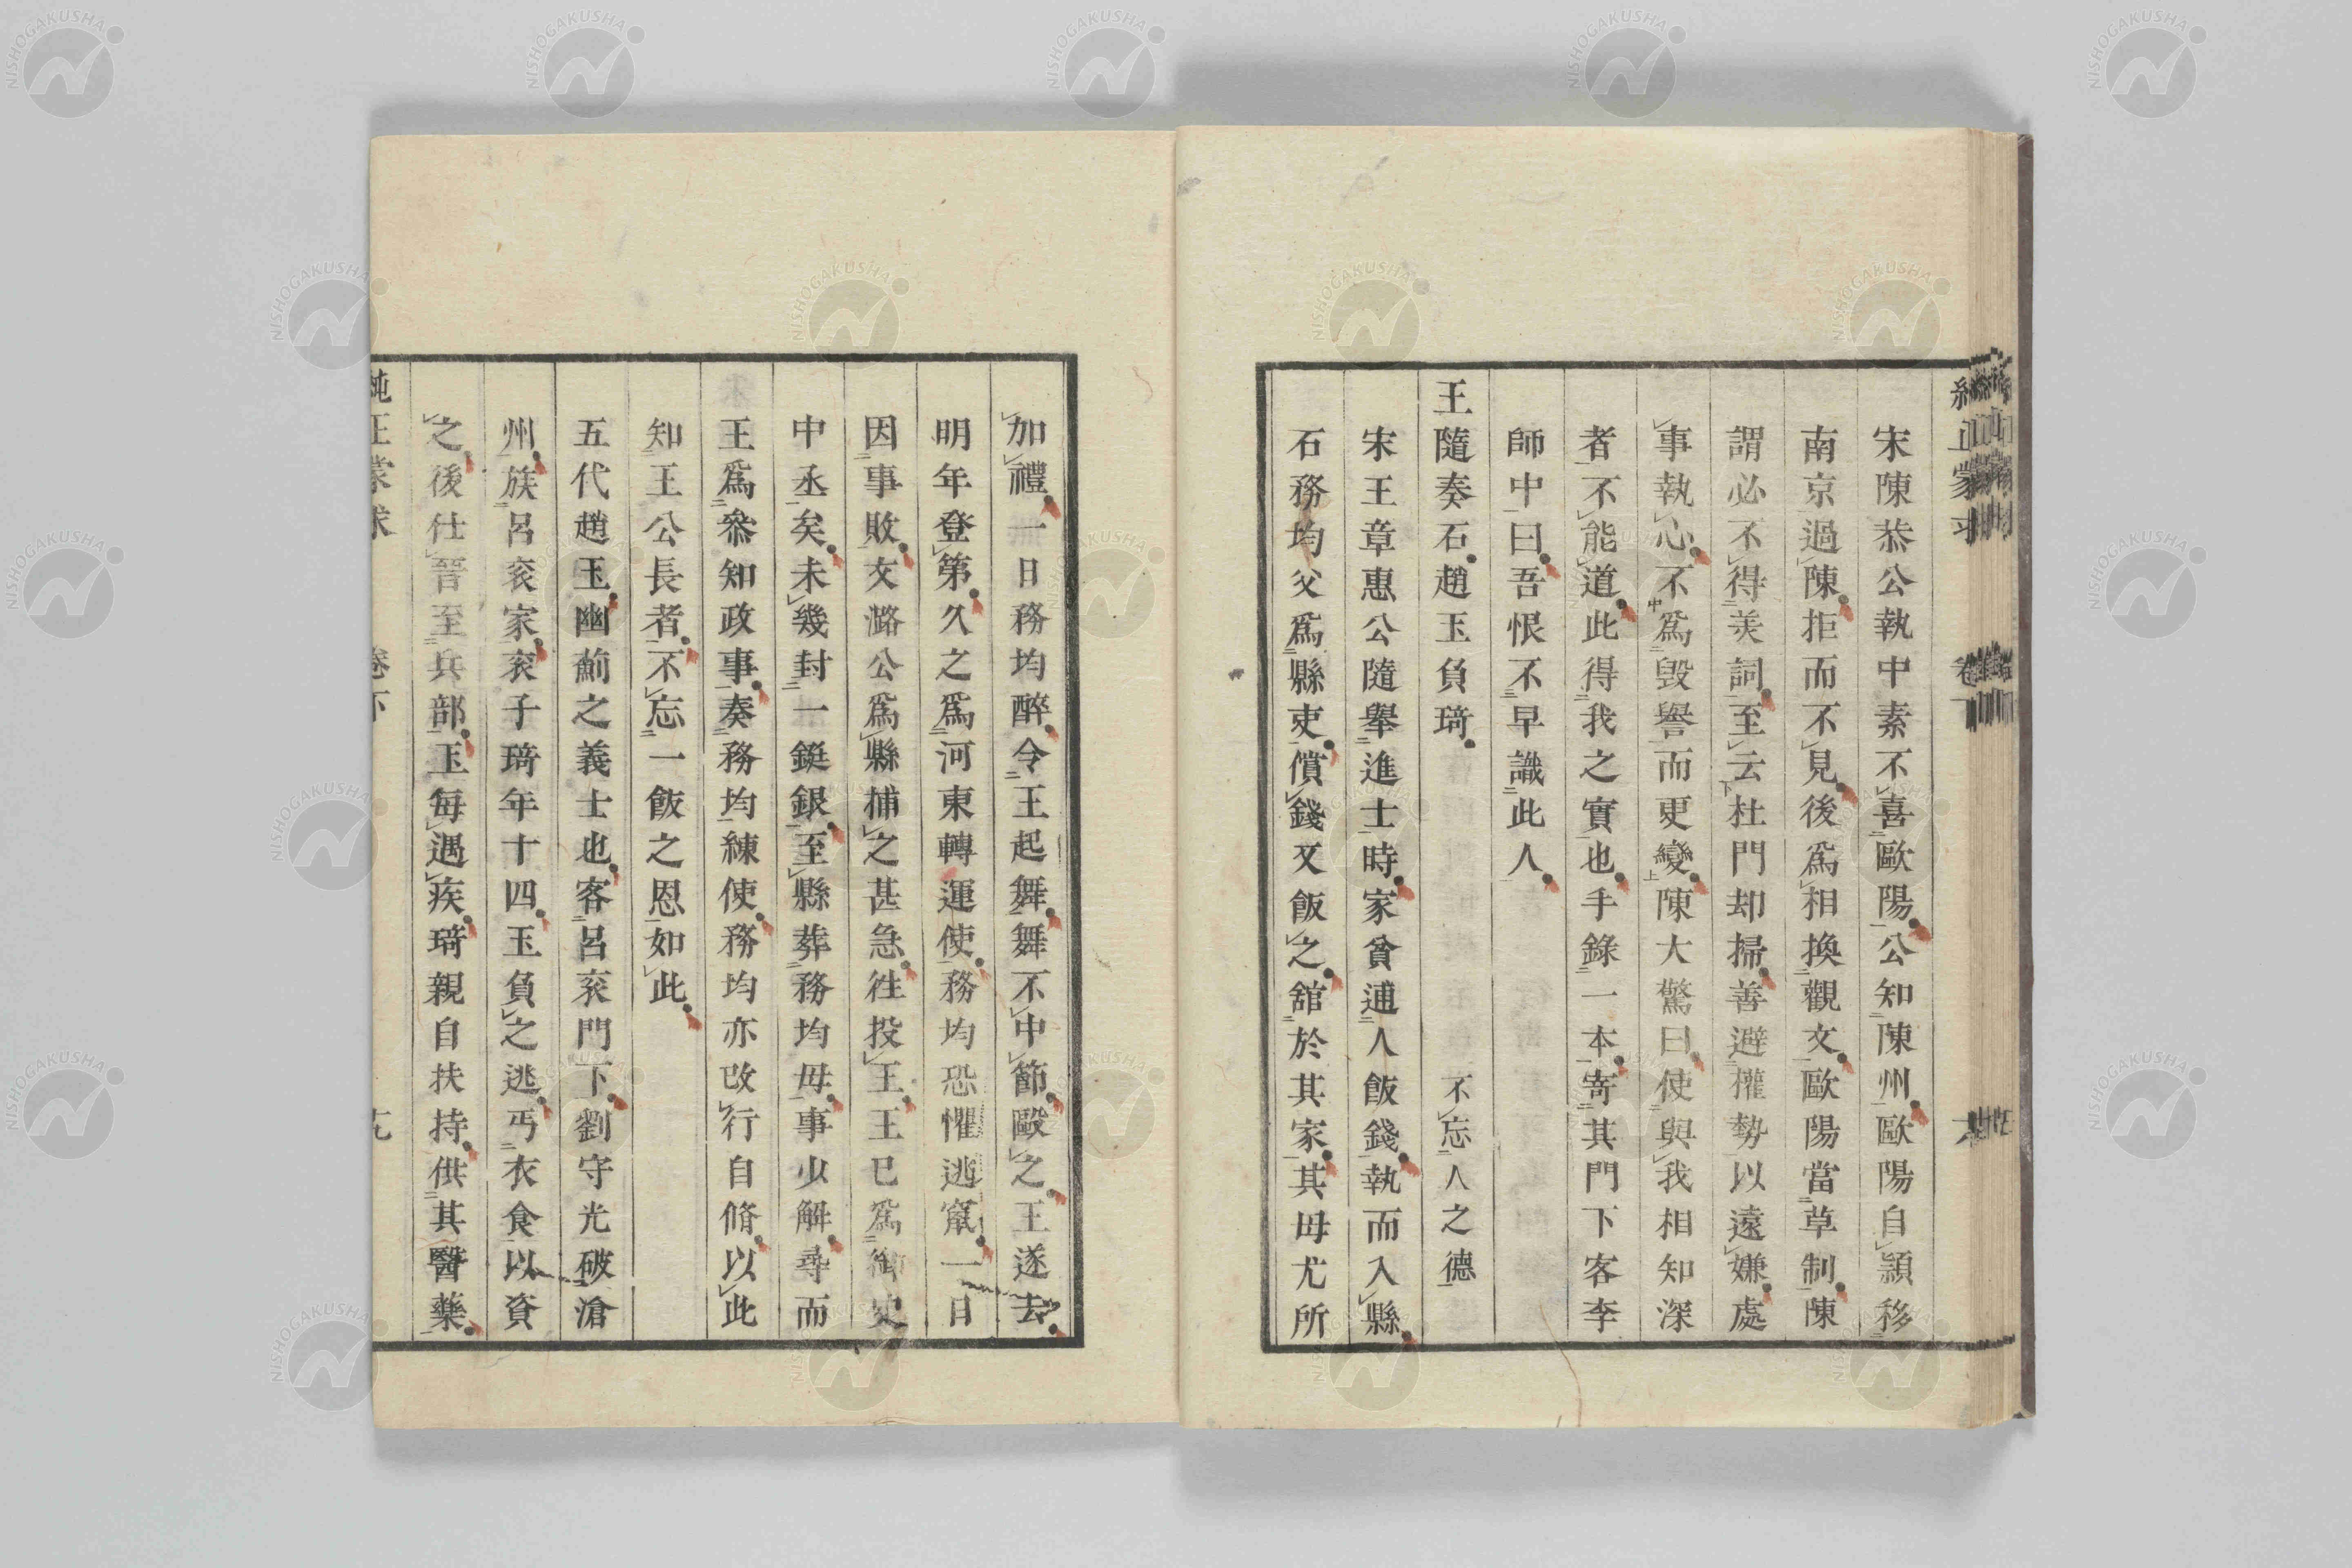 宋陳恭公執中素不喜歐陽公知陳州歐陽自潁移
南京過陳拒而不見後爲相換觀文歐陽當草制陳
謂必不得美詞至云杜門却掃善避權勢以遠嫌處
事執心不爲毀譽而更變陳大驚曰使與我相知深
者不能道此得我之實也手錄一本寄其門下客李
師中曰吾恨不早識此人
王隨奏石趙玉負琦 不忘人之德
宋王章惠公隨舉進士時家貧逋人飯錢執而入縣
石務均父爲縣吏償錢又飯之舘於其家其母尤所
加禮一日務均醉令王起舞舞不中節毆之王遂去
明年登第久之爲河東轉運使務均恐懼逃竄一日
因事敗文潞公爲縣捕之甚急徃投王王已爲御史
中丞矣未幾封一鋌銀至縣葬務均母事少解尋而
王爲叅知政事奏務均練使務均亦改行自脩以此
知王公長者不忘一飯之恩如此
五代趙玉幽薊之義士也客呂兖門下劉守光破滄
州族呂兖家兖子琦年十四玉負之逃丐衣食以資
之後仕晉至兵部玉每遇疾琦親自扶持供其醫藥
純正蒙求 卷下 十九
NISHOGAKUSHA